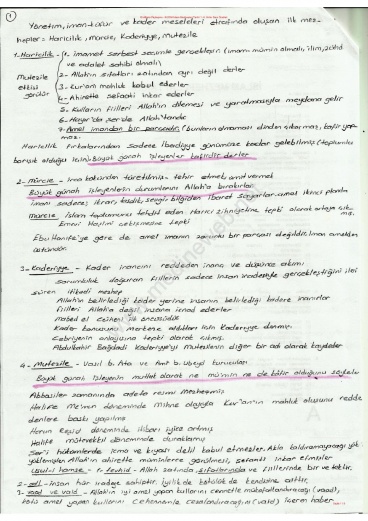 1
Yönetim, iman-küfür ve kader meseleleri etrafında oluşan ilk mez-
hepler = Haricilik, Mürcie, Kaderiyye, Mutezile
1- Haricilik - 1. imamet serbest seçimle gerçekleşir (imam mümin olmalı, ilim, zühd
ve adalet sahibi olmalı)
Mutezile etkisi görülür
2- Allah'ın sıfatları zatından ayrı değil derler
3- Kur'an mahluk kabul ederler
4- Ahirette şefaati inkar ederler
5- Kulların fiilleri Allah'ın dilemesi ve yaratmasıyla meydana gelir
6- Hayır'da şer'de Allah'tandır
7- Amel imandan bir parçadır (bunların olmaması dinden çıkarmaz, kafir yap-
maz.
Haricilik fırkalarından sadece İbadiyye günümüze kadar gelebilmiş (toplumla
barışık olduğu için) Büyük günah işleyenler kafirdir derler
2- Mürcie - ima kökünden türetilmiş tehir etmek, ümit vermek
Büyük günah işleyenlerin durumlarını Allah'a bırakırlar
imanı sadece; ikrar, tasdik, sevgi bilgiden ibaret sayarlar. amel ikinci planda
mürcie İslam toplumunu tehdit eden Harici zihniyetine tepki olarak ortaya çık-
mış.
Emevi Haşimi çekişmesine tepki
Ebu Hanife'ye göre de amel imanın zorunlu bir parçası değildir. İman amelden
üstündür
3- Kaderiyye - Kader inancını reddeden inanç ve düşünce akımı
sorumluluk doğuran fiillerin sadece insan iradesiyle gerçekleştiğini ileri
süren itikadi mezhep
Allah'ın belirlediği kader yerine insanın belirlediği kadere inanırlar
fiilleri Allah'a değil insana isnad ederler
mabed el cüheni ilk öncüsüdür
Kader konusunu merkeze aldıkları için Kaderiyye denmiş.
Cebriyenin anlayışına tepki olarak çıkmış.
Abdulkahir Bağdadi Kaderiyye'yi Mutezilenin diğer bir adı olarak kaydeder
4- Mutezile - Vasıl b. Ata ve Amr b. Ubeyd kurucuları
Büyük günah işleyenin mutlak olarak ne mü'min ne de kâfir olduğunu söyledi
Abbasiler zamanında adeta resmi mezhepmiş
Halife Me'mun döneminde mihne olayıyla Kur'an'ın mahluk oluşunu redde
denlere baskı yapılmış
Harun Reşid döneminde itibarı iyice artmış
Halife mütevekkil döneminde duraklamış
Şer'i hükümlerde icma ve kıyası delil kabul etmezler. Akla
Allah'ın ahirette müminlerce görülmesi, şefaati inkar etmişler
Usul-i hamse - 1- tevhid - Allah zatında, sıfatlarında ve fiillerinde bir ve tektir.
2- adl - insan hür iradeye sahiptir. iyilik de kötülük de kendisine aittir.
3- vaad ve vaid - Allah'ın iyi amel yapan kullarını cennetle mükafatlandıracağı (vaad),
kötü amel yapan kullarını cehennemle cezalandıracağını (vaid) haber